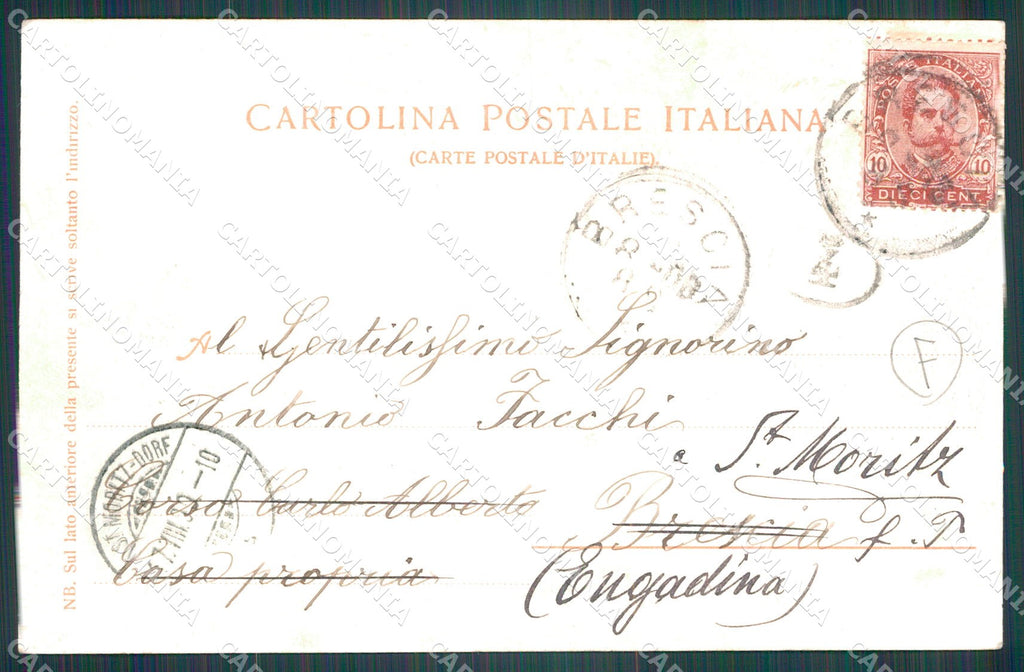 CARTOLINA POSTALE ITALIANA
(CARTE POSTALE D'ITALIE).
POSTE ITALIANE
10 10
DIECI CENT
BRESCIA
Al Gentilissimo Signorino
Antonio Facchi
a St. Moritz
Corso Carlo Alberto
Brescia f. P
Casa propria
(Engadina)
F
ST. MORITZ-DORF
VIII.02.-10
NB. Sul lato anteriore della presente si scrive soltanto l'indirizzo.
CARTOLINOMANIA